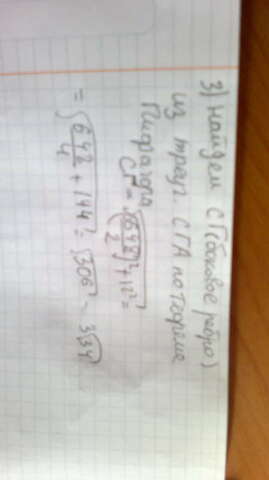 3) Найдем СГ(боковое ребро)
из треуг. СГА по теореме
Пифагора
СГ = √(
= √(648/4 + 144) = √306 = 3√34